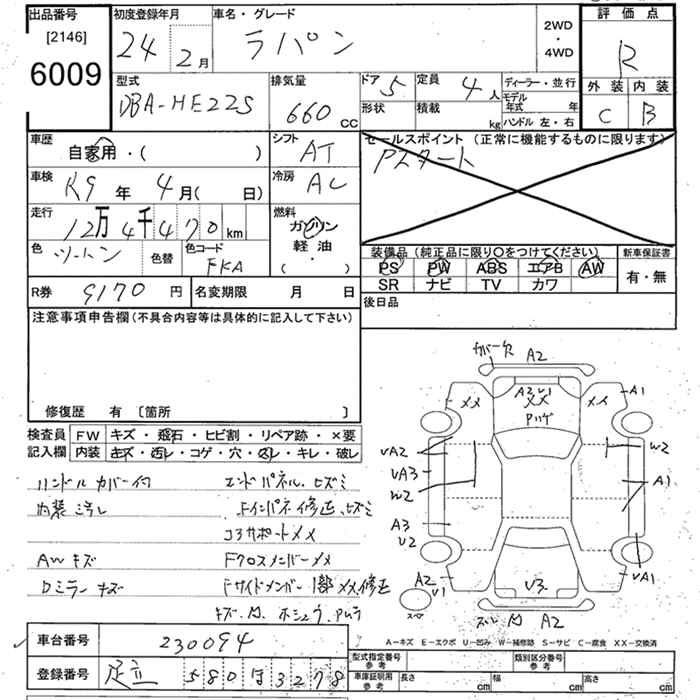 出品番号
[2146]
6009
初度登録年月
24年 2月
車名・グレード
ラパン
2WD
・
4WD
評価点
R
外装 内装
C B
型式
DBA-HE22S
排気量
660 cc
ドア 5
定員 4人
形状
積載 kg
ディーラー・並行
モデル年式 年
ハンドル 左・右
車歴
自家用・( )
シフト
AT
セールスポイント (正常に機能するものに限ります)
Pスタート
車検
R9年 4月( 日)
冷房
AC
走行
12万4千470km
燃料
ガソリン
軽油
( ・ )
色
ツートン
色替
色コード
FKA
装備品 (純正品に限り○をつけてください)
PS PW ABS エアB AW
SR ナビ TV カワ
新車保証書
有・無
R券 9170円
名変期限 月 日
後日品
注意事項申告欄(不具合内容等は具体的に記入して下さい)
修復歴 有 [箇所 ]
検査員記入欄
FW キズ・飛石・ヒビ割・リペア跡・×要
内装 キズ・汚レ・コゲ・穴・スレ・キレ・破レ
ハンドルカバー付
エンドパネルヒズミ
内装汚レ
Fインパネ修正、ヒズミ
コアサポートメメ
AWキズ
Fクロスメンバーメメ
Dミラーキズ
Fサイドメンバー1部メメ、修正
カバー欠 A2
XX
A2 U1
XX
XX
A1
UA2
UA3
W2
W2
A1
A3
U2
A2
U1
U3
UA1
A2
A-キズ E-エクボ U-凹み W-補修跡 S-サビ C-腐食 XX-交換済
車台番号 230094
登録番号 足立 580 ほ 3278
型式指定番号 参考
類別区分番号 参考
車庫証明用 参考
長さ cm
幅 cm
高さ cm